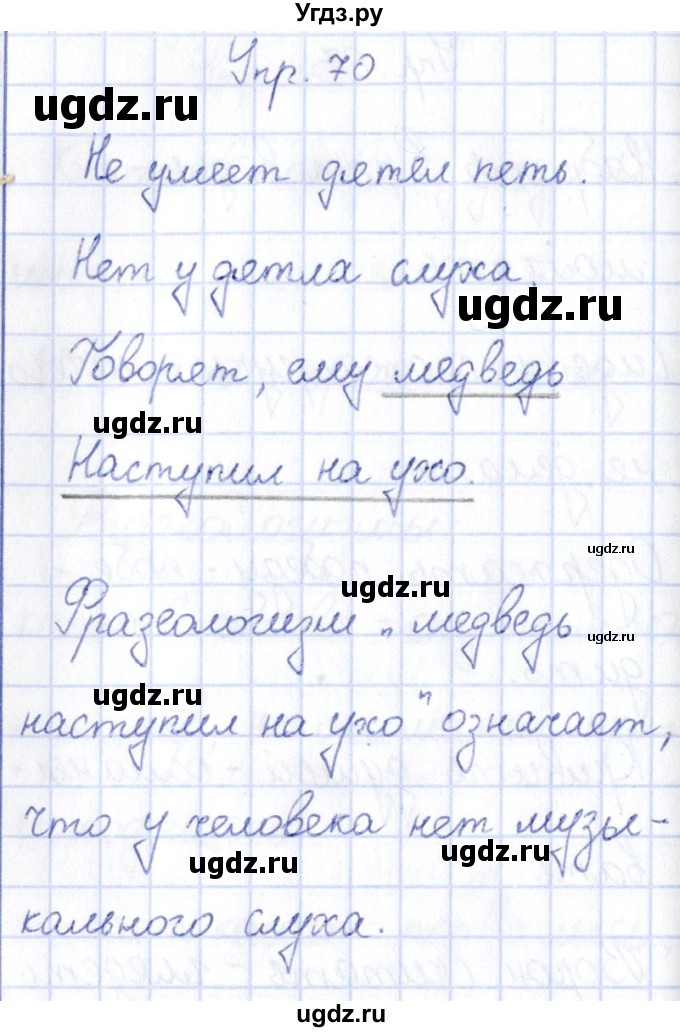 Угдз.ру
Упр. 70
ugdz.ru
Не умеет дятел петь.
Нет у дятла слуха.
ugdz.ru
Говорят, ему медведь
ugdz.ru
Наступил на ухо.
ugdz.ru
ugdz.ru
Фразеологизм "медведь
ugdz.ru
ugdz.ru
наступил на ухо" означает,
что у человека нет музы-
ugdz.ru
ugdz.ru
кального слуха.
ugdz.ru